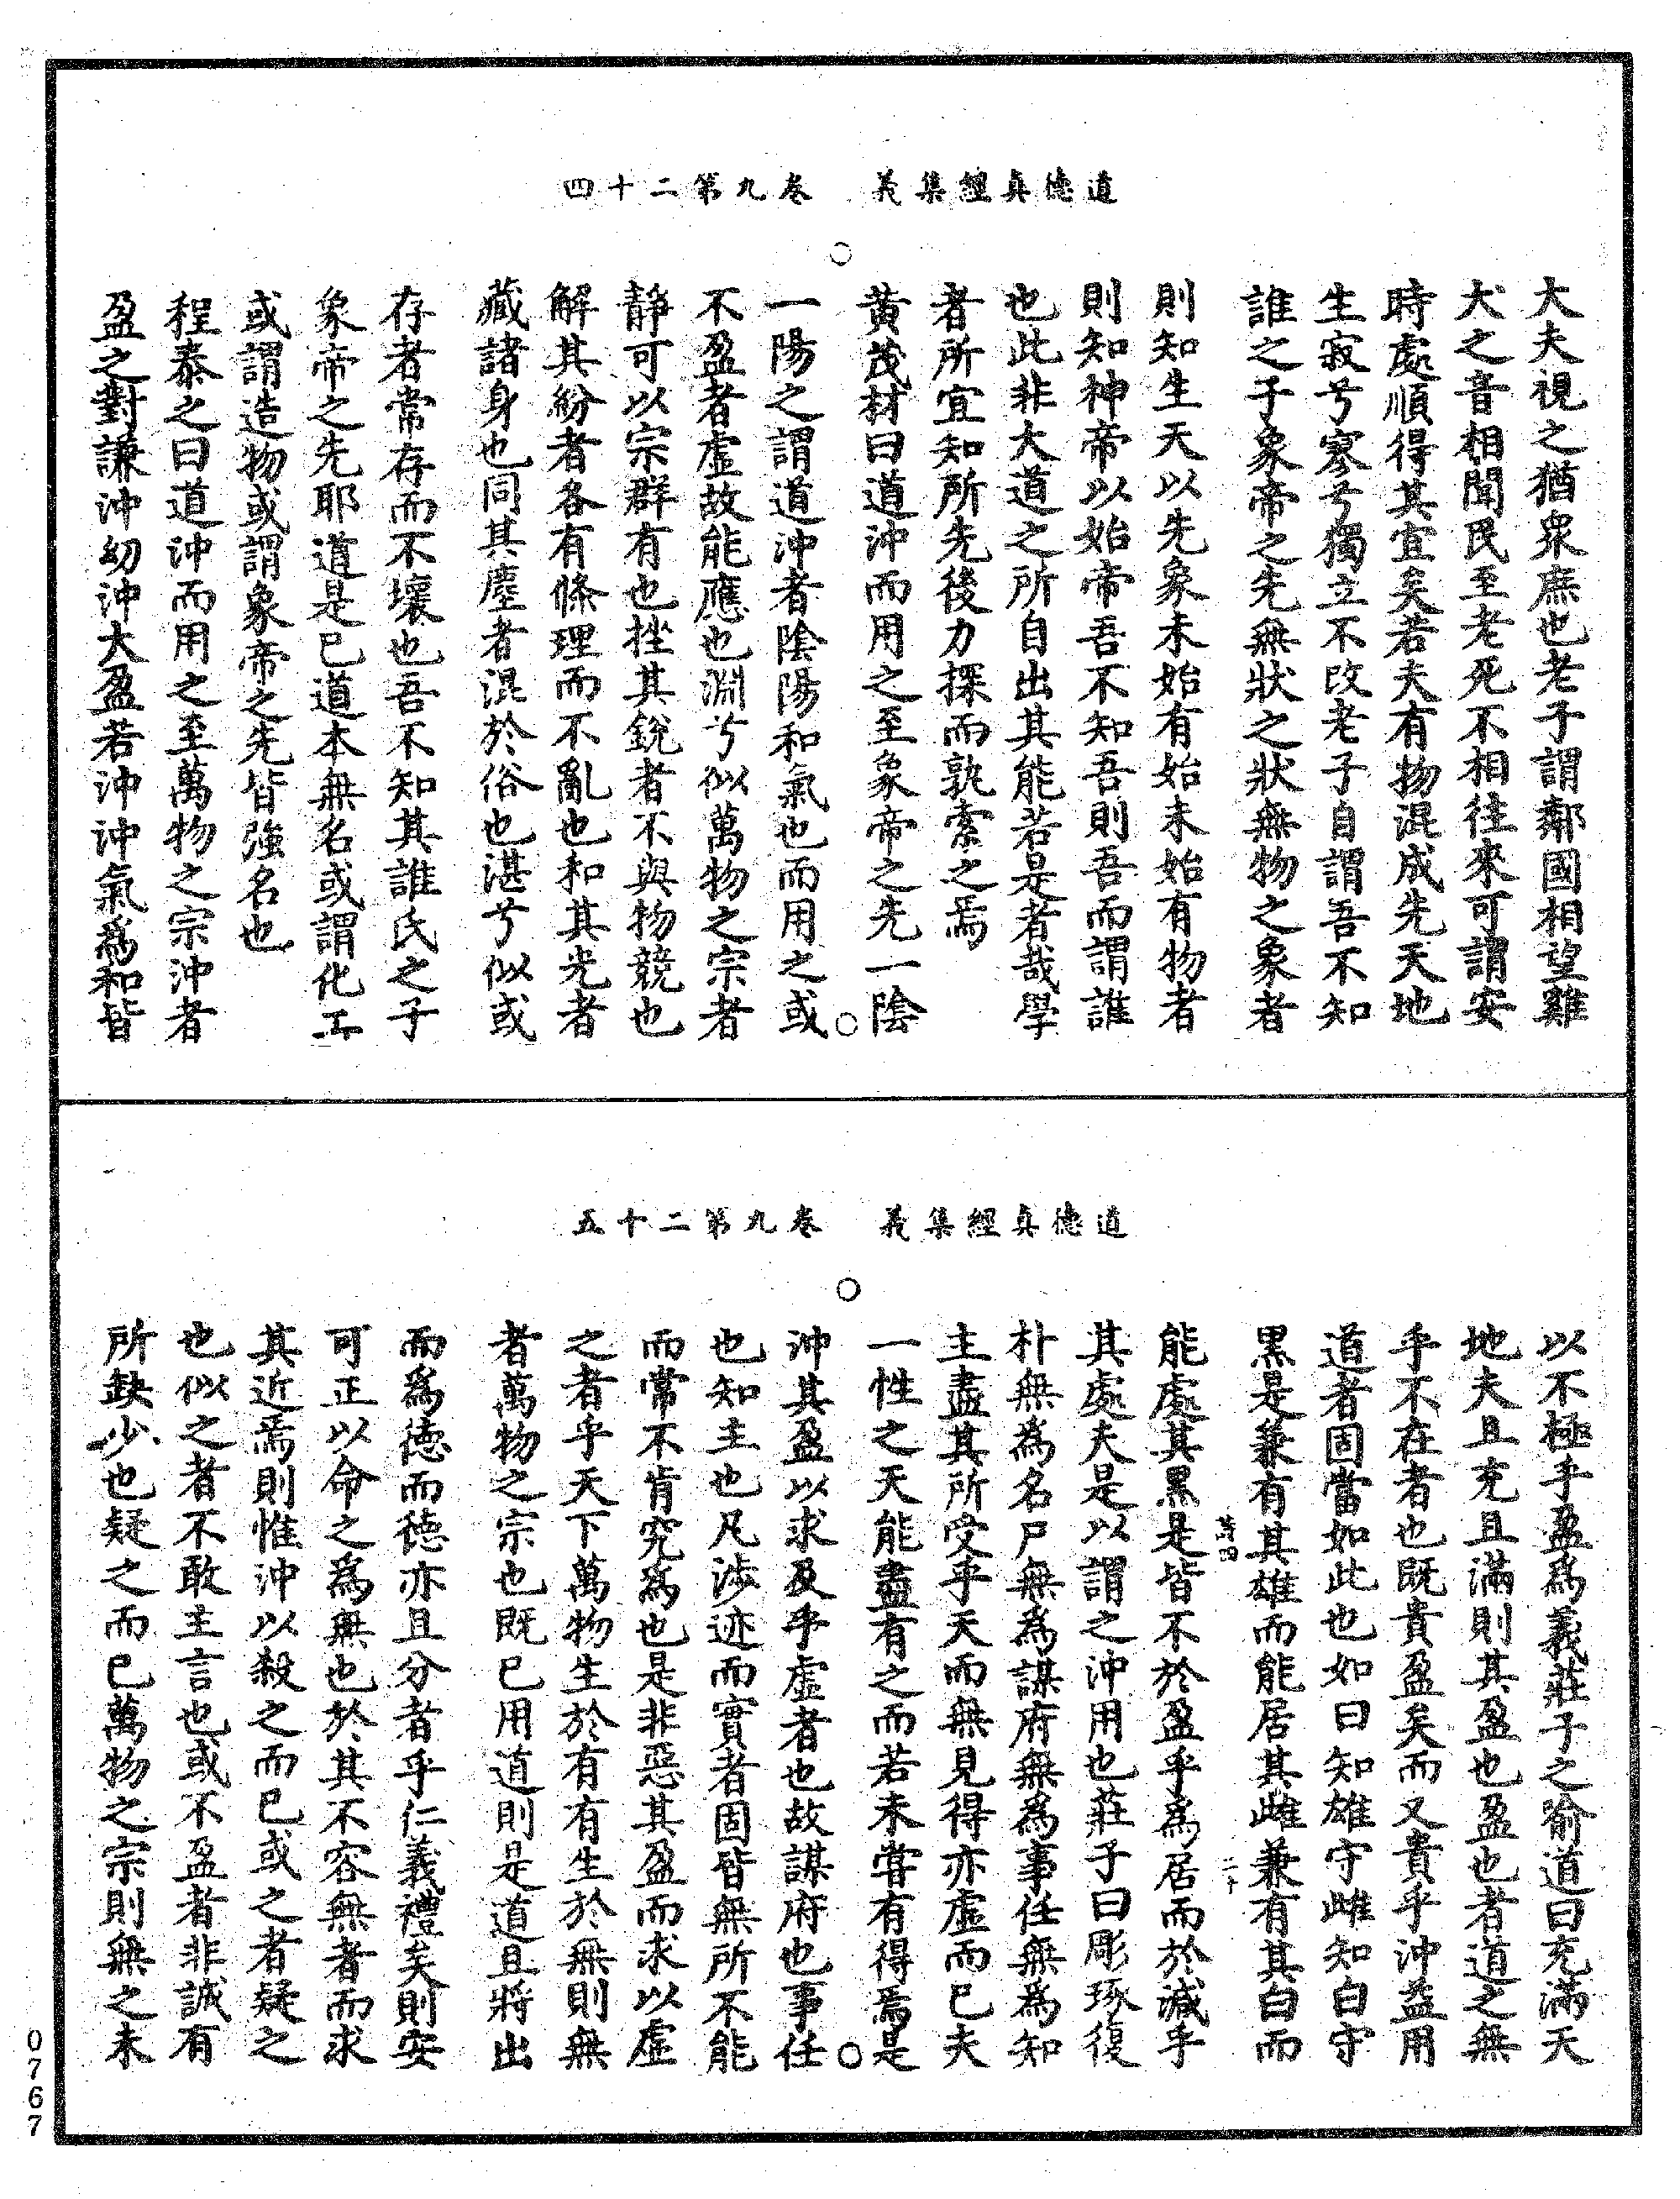 道德真經集義　卷九第二十四
大夫視之猶衆庶也老子謂鄰國相望雞
犬之音相聞民至老死不相往來可謂安
時處順得其宜矣若夫有物混成先天地
生寂兮寥兮獨立不改老子自謂吾不知
誰之子象帝之先無狀之狀無物之象者
則知生天以先象未始有始未始有物者
則知神帝以始帝吾不知吾則吾而謂誰
也此非大道之所自出其能若是者哉學
者所宜知所先後力探而孰索之焉
黃茂材曰道沖而用之至象帝之先一陰
一陽之謂道沖者陰陽和氣也而用之或
不盈者虛故能應也淵兮似萬物之宗者
靜可以宗群有也挫其銳者不與物競也
解其紛者各有條理而不亂也和其光者
藏諸身也同其塵者混於俗也湛兮似或
存者常存而不壞也吾不知其誰氏之子
象帝之先耶道是已道本無名或謂化工
或謂造物或謂象帝之先皆強名也
程泰之曰道沖而用之至萬物之宗沖者
盈之對謙沖幼沖大盈若沖沖氣為和皆
道德真經集義　卷九第二十五
以不極乎盈為義莊子之喻道曰充滿天
地夫且充且滿則其盈也盈也者道之無
乎不在者也既貴盈矣而又貴乎沖益用
道者固當如此也如曰知雄守雌知白守
黑是兼有其雄而能居其雌兼有其白而
能處其黑是皆不於盈乎為居而於減乎
其處夫是以謂之沖用也莊子曰彫琢復
朴無為名尸無為謀府無為事任無為知
主盡其所受乎天而無見得亦虛而已夫
一性之天能盡有之而若未嘗有得焉是
沖其盈以求及乎虛者也故謀府也事任
也知主也凡涉迹而實者固皆無所不能
而常不肯究為也是非惡其盈而求以虛
之者乎天下萬物生於有有生於無則無
者萬物之宗也既已用道則是道且將出
而為德而德亦且分者乎仁義禮矣則安
可正以命之為無也於其不容無者而求
其近焉則惟沖以殺之而已或之者疑之
也似之者不敢主言也或不盈者非誠有
所缺少也疑之而已萬物之宗則無之未
0767